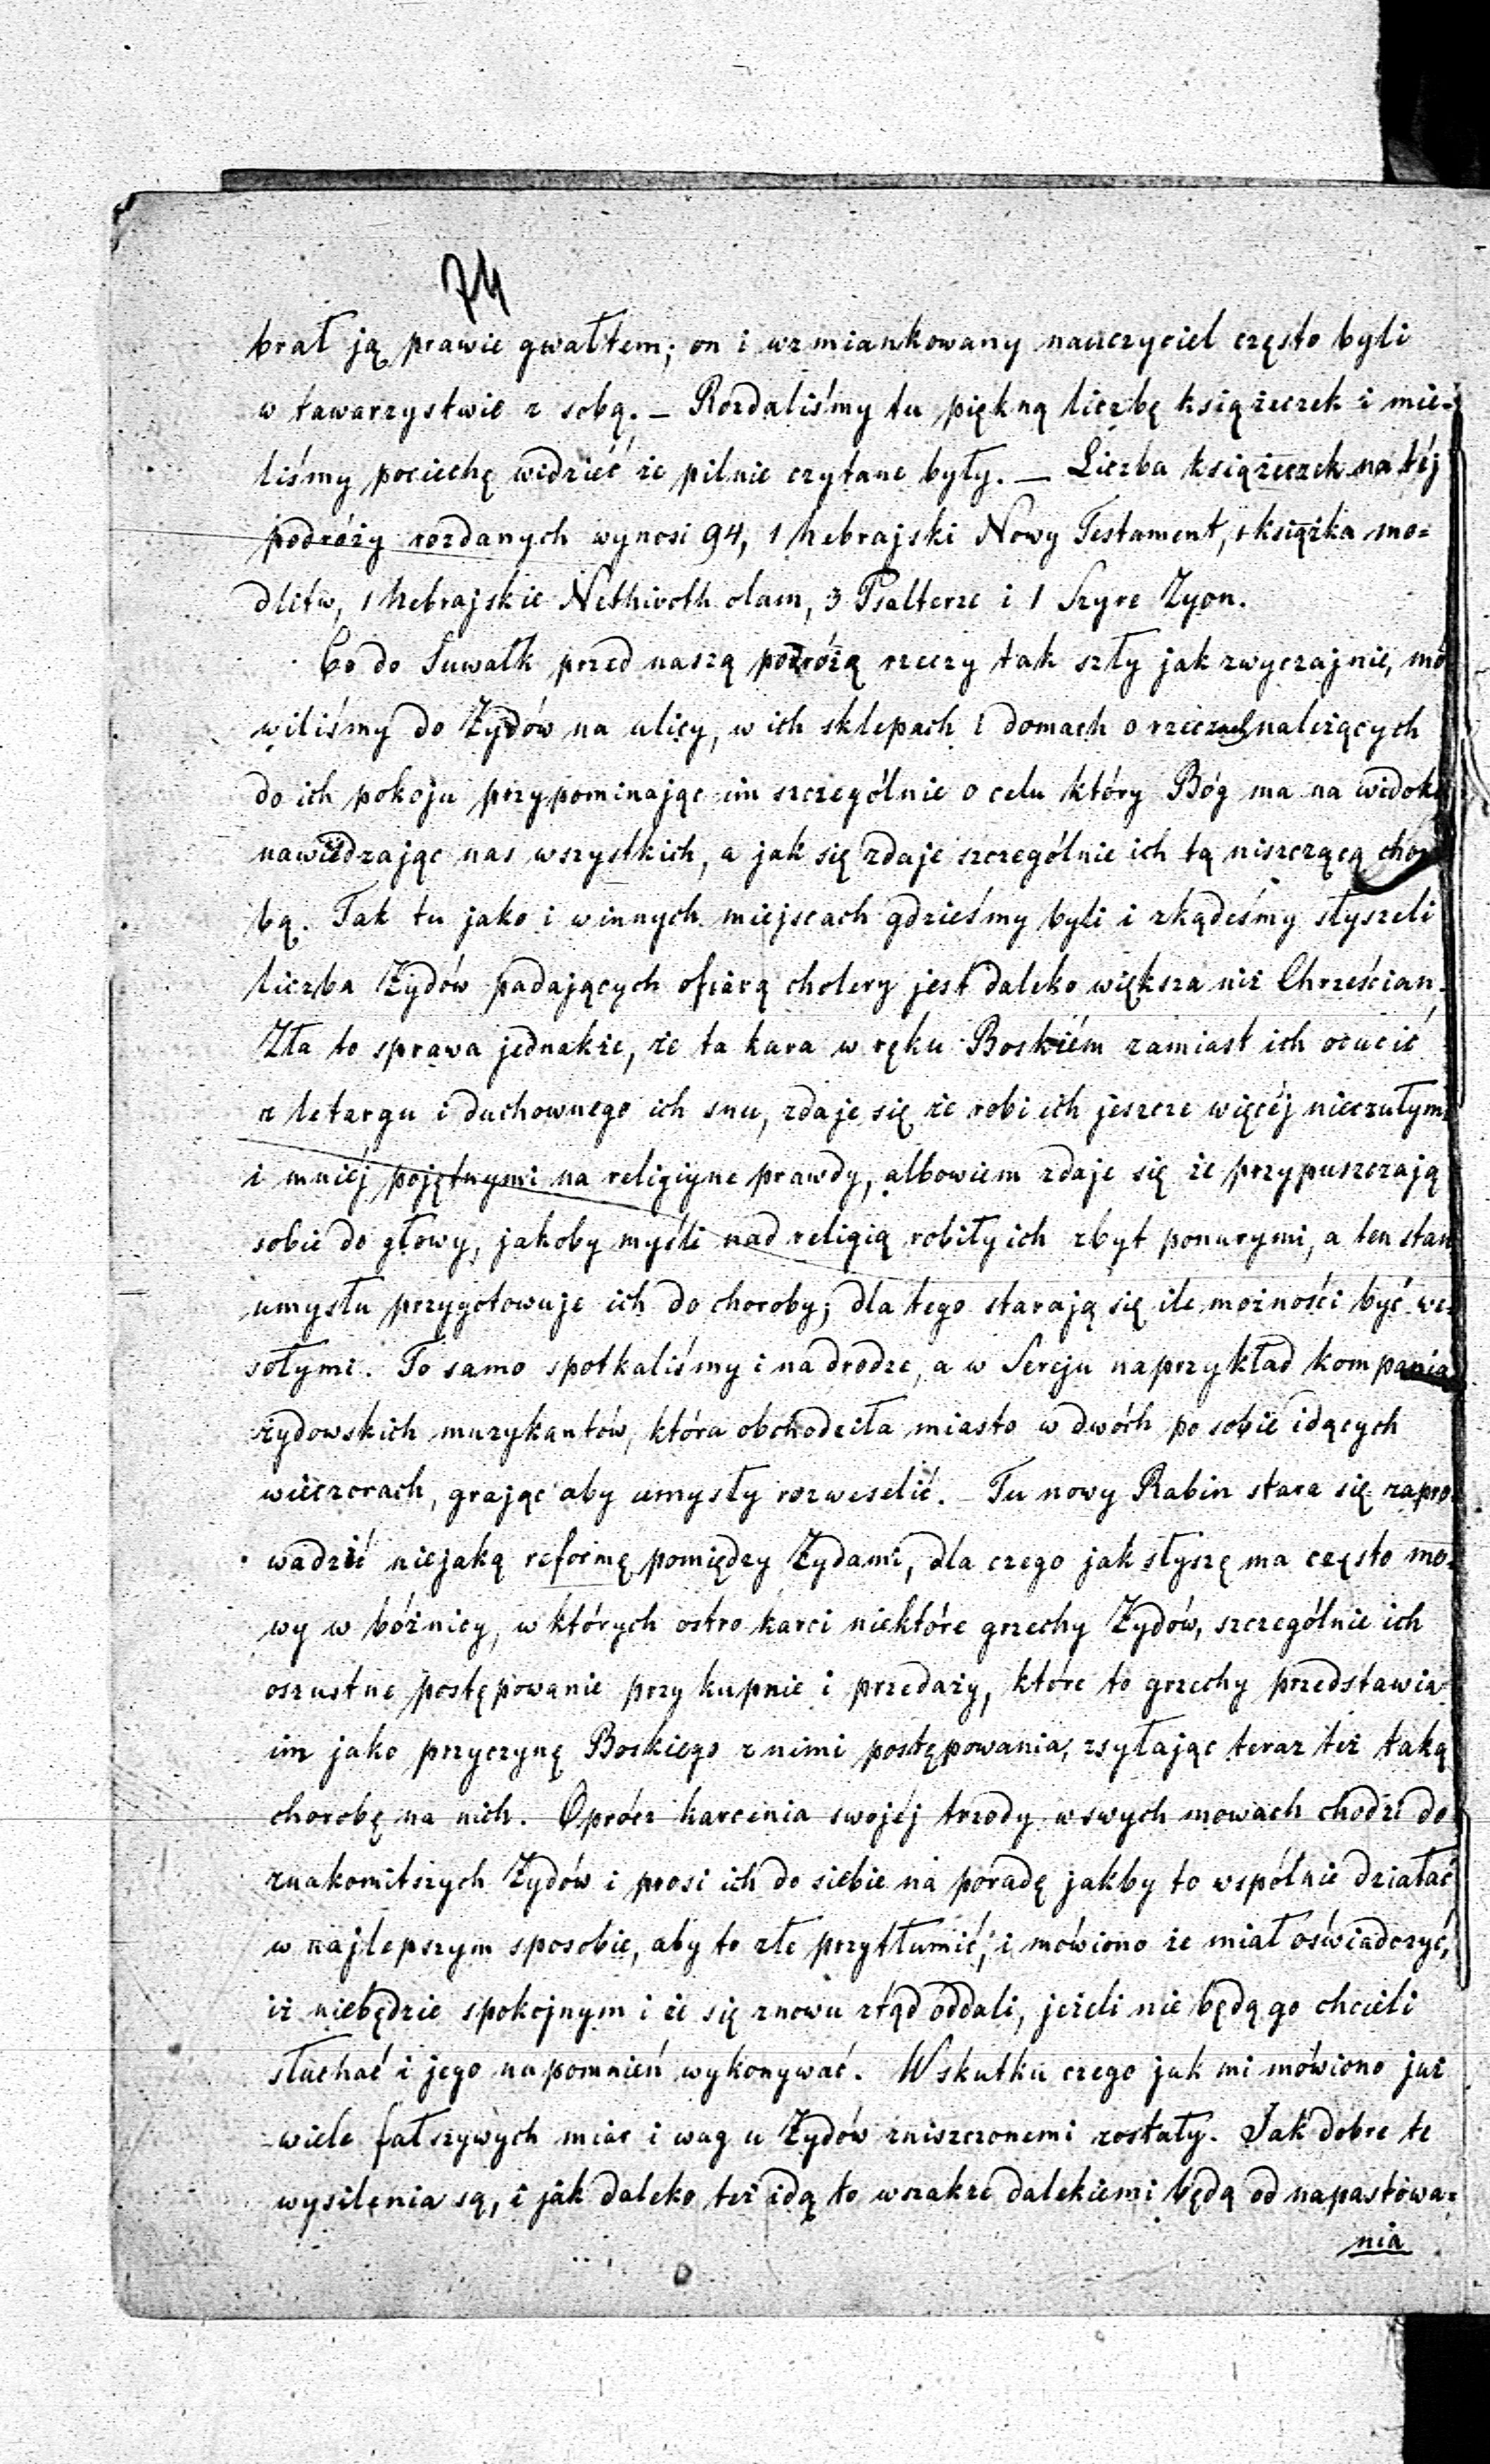 74
brał ją prawie gwałtem; on i wzmiankowany nauczyciel często byli
w towarzystwie z sobą. – Rozdaliśmy tu piękną liczbę książeczek i mie-
liśmy pociechę widzieć że pilnie czytane były. – Liczba książeczek na téj
podróży rozdanych wynosi 94, 1 hebrajski Nowy Testament, 1 książka mo=
dlitw, 1 hebrajskie Nethivoth olam, 3 Psalterze i 1 Szyre Zyon.
Co do Suwałk przed naszą podróżą rzeczy tak szły jak zwyczajnie, mó
wiliśmy do Żydów na ulicy, w ich sklepach i domach o rzeczach należących
do ich pokoju przypominając im szczególnie o celu który Bóg ma na widoku
nawiédzając nas wszystkich, a jak się zdaje szczególnie ich tą niszczącą choro
bą. Tak tu jako i w innych miejscach gdzieśmy byli i zkądeśmy słyszeli
liczba Żydów padających ofiarą cholery jest daleko większa niż Chrześcian.
Zła to sprawa jednakże, że ta kara w ręku Boskiém zamiast ich ocucić
z letargu i duchownego ich snu, zdaje się że robi ich jeszcze więcéj nieczułymi
i mniéj pojętnymi na religijne prawdy, albowiem zdaje się że przypuszczają
sobie do głowy, jakoby myśli nad religią robiły ich zbyt ponurymi, a ten stan
umysłu przygotowuje ich do choroby; dla tego starają się ile możności być we-
sołymi. To samo spotkaliśmy i na drodze, a w Sereju naprzykład kompania
żydowskich muzykantów, która obchodziła miasto w dwóch po sobie idących
wieczorach, grając aby umysły rozweselić. – Tu nowy Rabin stara się zapro-
wadzić niejaką reformę pomiędzy Żydami, dla czego jak słyszę ma często mo-
wy w bóżnicy, w których ostro karci niektóre grzechy Żydów, szczególnie ich
oszustne postępowanie przy kupnie i przedaży, które to grzechy przedstawia
im jako przyczynę Boskiego z nimi postępowania, zsyłając teraz też taką
chorobę na nich. Oprócz karcenia swojéj trzody w swych mowach chodzi do
znakomitszych Żydów i prosi ich do siebie na poradę jakby to wspólnie działać
w najlepszym sposobie, aby to złe przytłumić, i mówiono że miał oświadczyć,
iż niebędzie spokojnym i że się znowu ztąd oddali, jeżeli nie będą go chcieli
słuchać i jego napomnień wykonywać. W skutku czego jak mi mówiono już
wiele fałszywych miar i wag u Żydów zniszczonemi zostały. Jak dobre te
wysilenia są, i jak daleko też idą to wszakże dalekiemi będą od napastowa=
nia